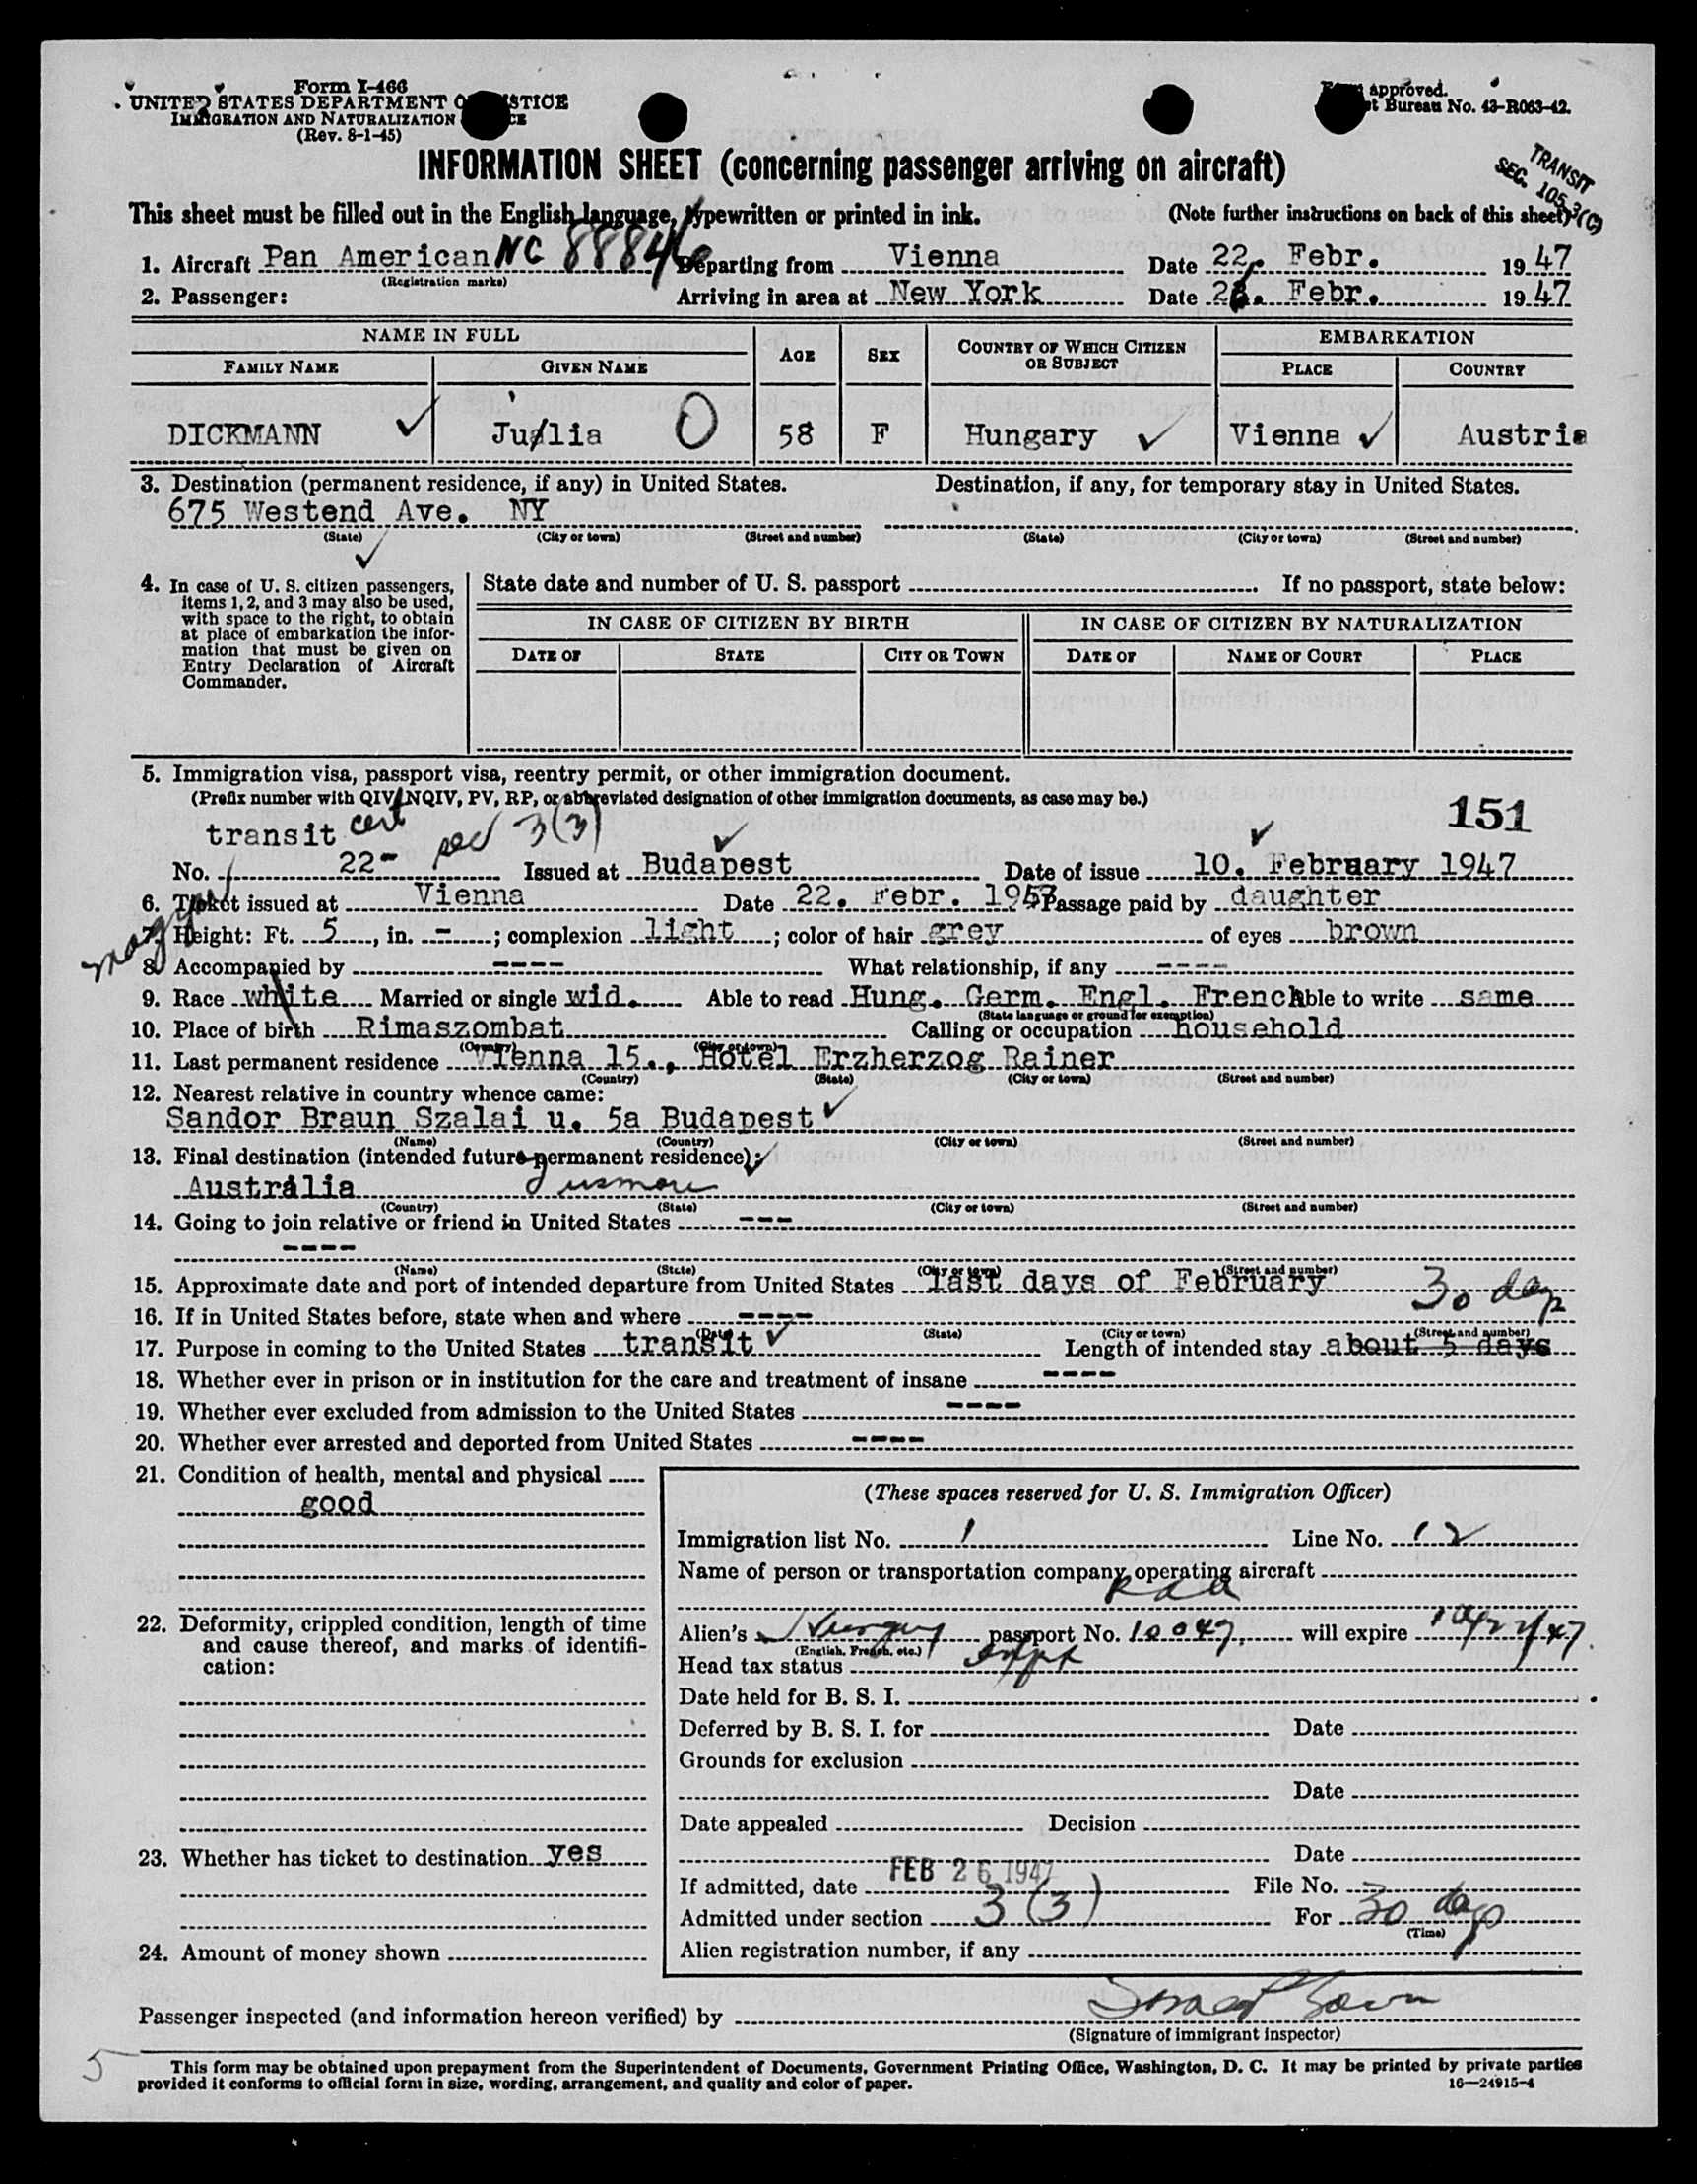 Form I-466
UNITED STATES DEPARTMENT O STICE
IMMIGRATION AND NATURALIZATION CE
(Rev. 8-1-45)
approved.
t Bureau No. 43-R063-42.
INFORMATION SHEET (concerning passenger arriving on aircraft)
TRANSIT
SEC. 105.3(C)
This sheet must be filled out in the English language, typewritten or printed in ink. (Note further instructions on back of this sheet)
1. Aircraft Pan American NC 88846 Departing from Vienna Date 22. Febr. 1947
(Registration marks)
2. Passenger: Arriving in area at New York Date 26. Febr. 1947
NAME IN FULL AGE SEX COUNTRY OF WHICH CITIZEN OR SUBJECT EMBARKATION
FAMILY NAME GIVEN NAME PLACE COUNTRY
DICKMANN ✓ Julia O 58 F Hungary ✓ Vienna ✓ Austria
3. Destination (permanent residence, if any) in United States. Destination, if any, for temporary stay in United States.
675 Westend Ave. NY
(State) (City or town) (Street and number) (State) (City or town) (Street and number)
✓
4. In case of U. S. citizen passengers,
items 1, 2, and 3 may also be used,
with space to the right, to obtain
at place of embarkation the infor-
mation that must be given on
Entry Declaration of Aircraft
Commander.
State date and number of U. S. passport If no passport, state below:
IN CASE OF CITIZEN BY BIRTH IN CASE OF CITIZEN BY NATURALIZATION
DATE OF STATE CITY OR TOWN DATE OF NAME OF COURT PLACE
5. Immigration visa, passport visa, reentry permit, or other immigration document.
(Prefix number with QIV, NQIV, PV, RP, or abbreviated designation of other immigration documents, as case may be.)
151
transit cert sec 3(3) ✓ ✓
No. 22- Issued at Budapest Date of issue 10. February 1947
6. Ticket issued at Vienna Date 22. Febr. 1947 Passage paid by daughter
magyar
7. Height: Ft. 5, in. -; complexion light; color of hair grey of eyes brown
8. Accompanied by ---- What relationship, if any ----
9. Race white Married or single wid. Able to read Hung. Germ. Engl. French Able to write same
(State language or ground for exemption)
10. Place of birth Rimaszombat Calling or occupation household
(Country) (City or town)
11. Last permanent residence Vienna 15., Hotel Erzherzog Rainer
(Country) (State) (City or town) (Street and number)
12. Nearest relative in country whence came:
Sandor Braun Szalai u. 5a Budapest ✓
(Name) (Country) (City or town) (Street and number)
13. Final destination (intended future permanent residence): ✓
Australia
(Country) (State) (City or town) (Street and number)
14. Going to join relative or friend in United States ---
----
(Name) (State) (City or town) (Street and number)
15. Approximate date and port of intended departure from United States last days of February
30 days
16. If in United States before, state when and where ----
(Date) (State) (City or town) (Street and number)
17. Purpose in coming to the United States transit ✓ Length of intended stay about 5 days
18. Whether ever in prison or in institution for the care and treatment of insane ----
19. Whether ever excluded from admission to the United States ----
20. Whether ever arrested and deported from United States ----
21. Condition of health, mental and physical
good
22. Deformity, crippled condition, length of time
and cause thereof, and marks of identifi-
cation:
23. Whether has ticket to destination yes
24. Amount of money shown
(These spaces reserved for U. S. Immigration Officer)
Immigration list No. 1 Line No. 12
Name of person or transportation company operating aircraft
Alien's Hungary passport No. 10047, will expire
(English, French, etc.)
Head tax status
Date held for B. S. I.
Deferred by B. S. I. for Date
Grounds for exclusion
Date
Date appealed Decision
Date
If admitted, date FEB 26 1947 File No.
Admitted under section 3 (3) For 30 days
(Time)
Alien registration number, if any
Passenger inspected (and information hereon verified) by
(Signature of immigrant inspector)
5
This form may be obtained upon prepayment from the Superintendent of Documents, Government Printing Office, Washington, D. C. It may be printed by private parties
provided it conforms to official form in size, wording, arrangement, and quality and color of paper. 16—24915-4